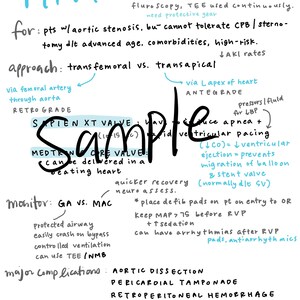 fluroscopy, TEE used continuously.
need protective gear
for: pts w/ aortic stenosis, but cannot tolerate CPB / sterno-
tomy d/t advanced age, comorbidities, high-risk.
↓AKI rates
approach: transfemoral vs. transapical
via femoral artery
through aorta
RETROGRADE
via L apex of heart
ANTEGRADE
pressors/fluid
for LBP
SAPIEN XT VALVE
apnea +
ventricular pacing
Sample
(↓CO) = ↓ ventricular
ejection → prevents
migration of balloon
& stent valve
(normally d/t SV)
MEDTRONIC CORE VALVE:
can be delivered in a
beating heart
quicker recovery
neuro assess.
monitor: GA vs. MAC
protected airway
easily crash on bypass
controlled ventilation
can use TEE/NMB
*place defib pads on pt on entry to OR
KEEP MAP >75 before RVP
↑ sedation
can have arrhythmias after RVP
pads, antiarrhythmics
major complications: AORTIC DISSECTION
PERICARDIAL TAMPONADE
RETROPERITONEAL HEMORRHAGE